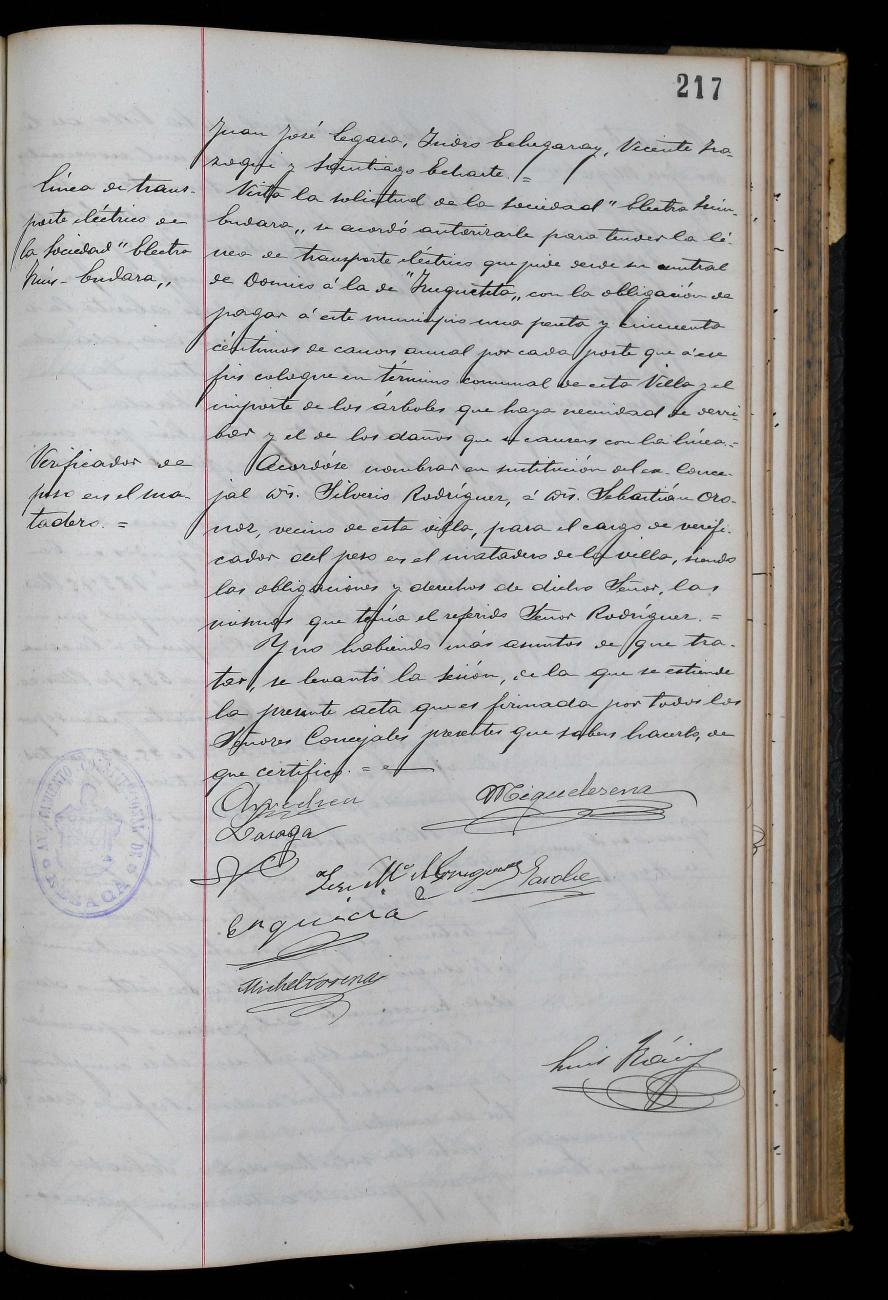 217
Juan José Legasa, Isidro Echegaray, Vicente Ira-
zoqui y Santiago Echarte. =
Línea de trans-
porte eléctrico de
la Sociedad "Electra
Irúis-Endara„
Vista la solicitud de la Sociedad "Electra Irúin-
Endara„ se acordó autorizarle para tender la lí-
nea de transporte eléctrico que pide desde su central
de Domico á la de "Zuguetita„ con la obligación de
pagar á este municipio una peseta y cincuenta
céntimos de canon anual por cada poste que á ese
fin coloque en término comunal de esta Villa y el
importe de los árboles que haya necesidad de derri-
bar y el de los daños que se causen con la línea.=
Verificador de
peso en el ma-
tadero. =
Acordóse nombrar en sustitución del ex-Conce-
jal Dn. Silverio Rodríguez, á Dn. Sebastián Oro-
noz, vecino de esta villa, para el cargo de verifi-
cador del peso en el matadero de la villa, siendo
las obligaciones y derechos de dicho Señor, las
mismas que tenía el referido Señor Rodríguez. =
Y no habiendo más asuntos de que tra-
tar, se levantó la sesión, de la que se estiende
la presente acta que es firmada por todos los
Señores Concejales presentes que saben hacerlo, de
que certifico. =
Miquelerena
Lasaga
José Mª
Enquicia
Micheltorena
Luis
AYUNTAMIENTO CONSTITUCIONAL DE LESACA